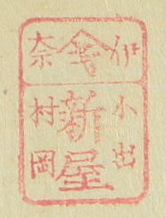 伊奈
小出
新屋
村岡